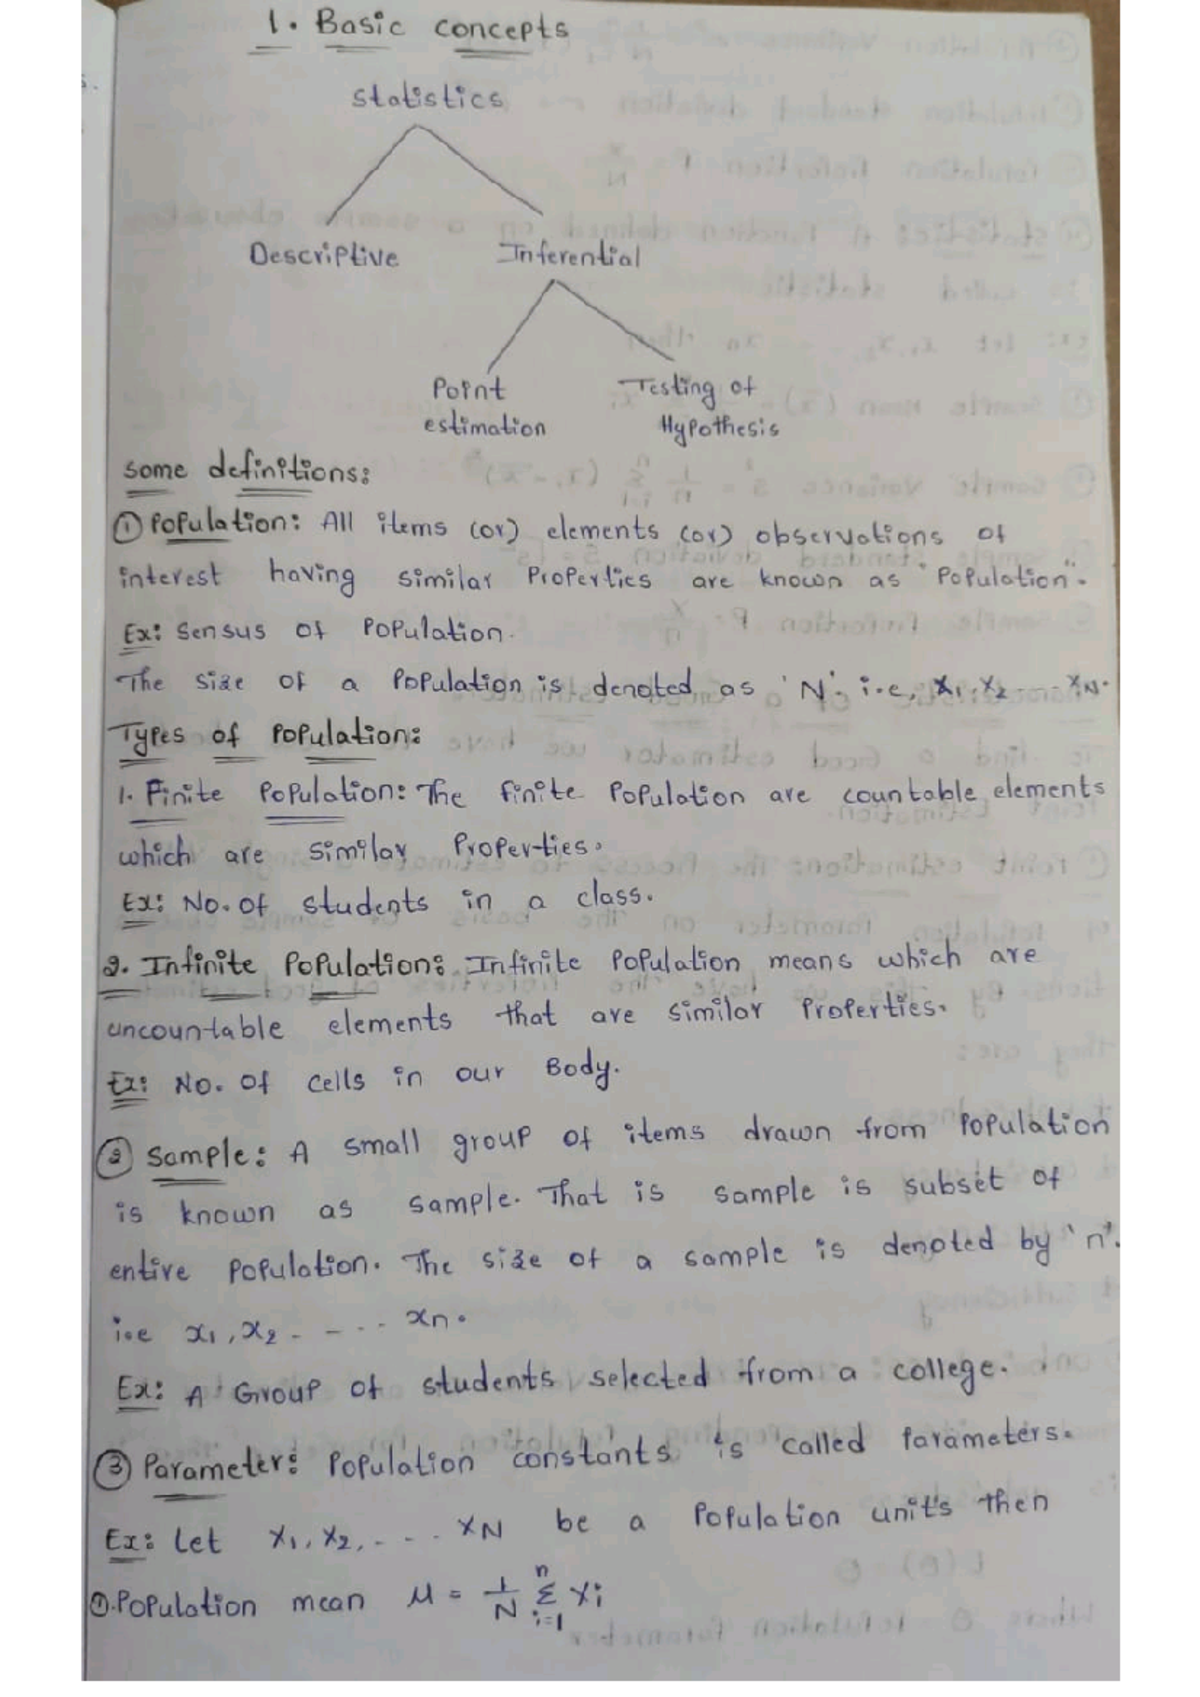 1. Basic concepts
Statistics
Descriptive Inferential
Point Testing of
estimation Hypothesis
Some definitions:
① Population: All items (or) elements (or) observations of
interest having similar Properties are known as "Population".
Ex: Sensus of Population.
The size of a Population is denoted as 'N'. i.e, X1, X2 ---- XN.
Types of Population:
1. Finite Population: The finite Population are countable elements
which are similar Properties.
Ex: No. of students in a class.
2. Infinite Population: Infinite Population means which are
uncountable elements that are similar Properties.
Ex: No. of cells in our Body.
② Sample: A small group of items drawn from Population
is known as sample. That is sample is subset of
entire Population. The size of a sample is denoted by 'n'.
i.e x1, x2 - - - .. xn.
Ex: A Group of students selected from a college.
③ Parameter: Population constants is called Parameters.
Ex: Let X1, X2, - - - XN be a Population unit's then
①. Population mean μ = 1/N Σ_{i=1}^{n} Xi